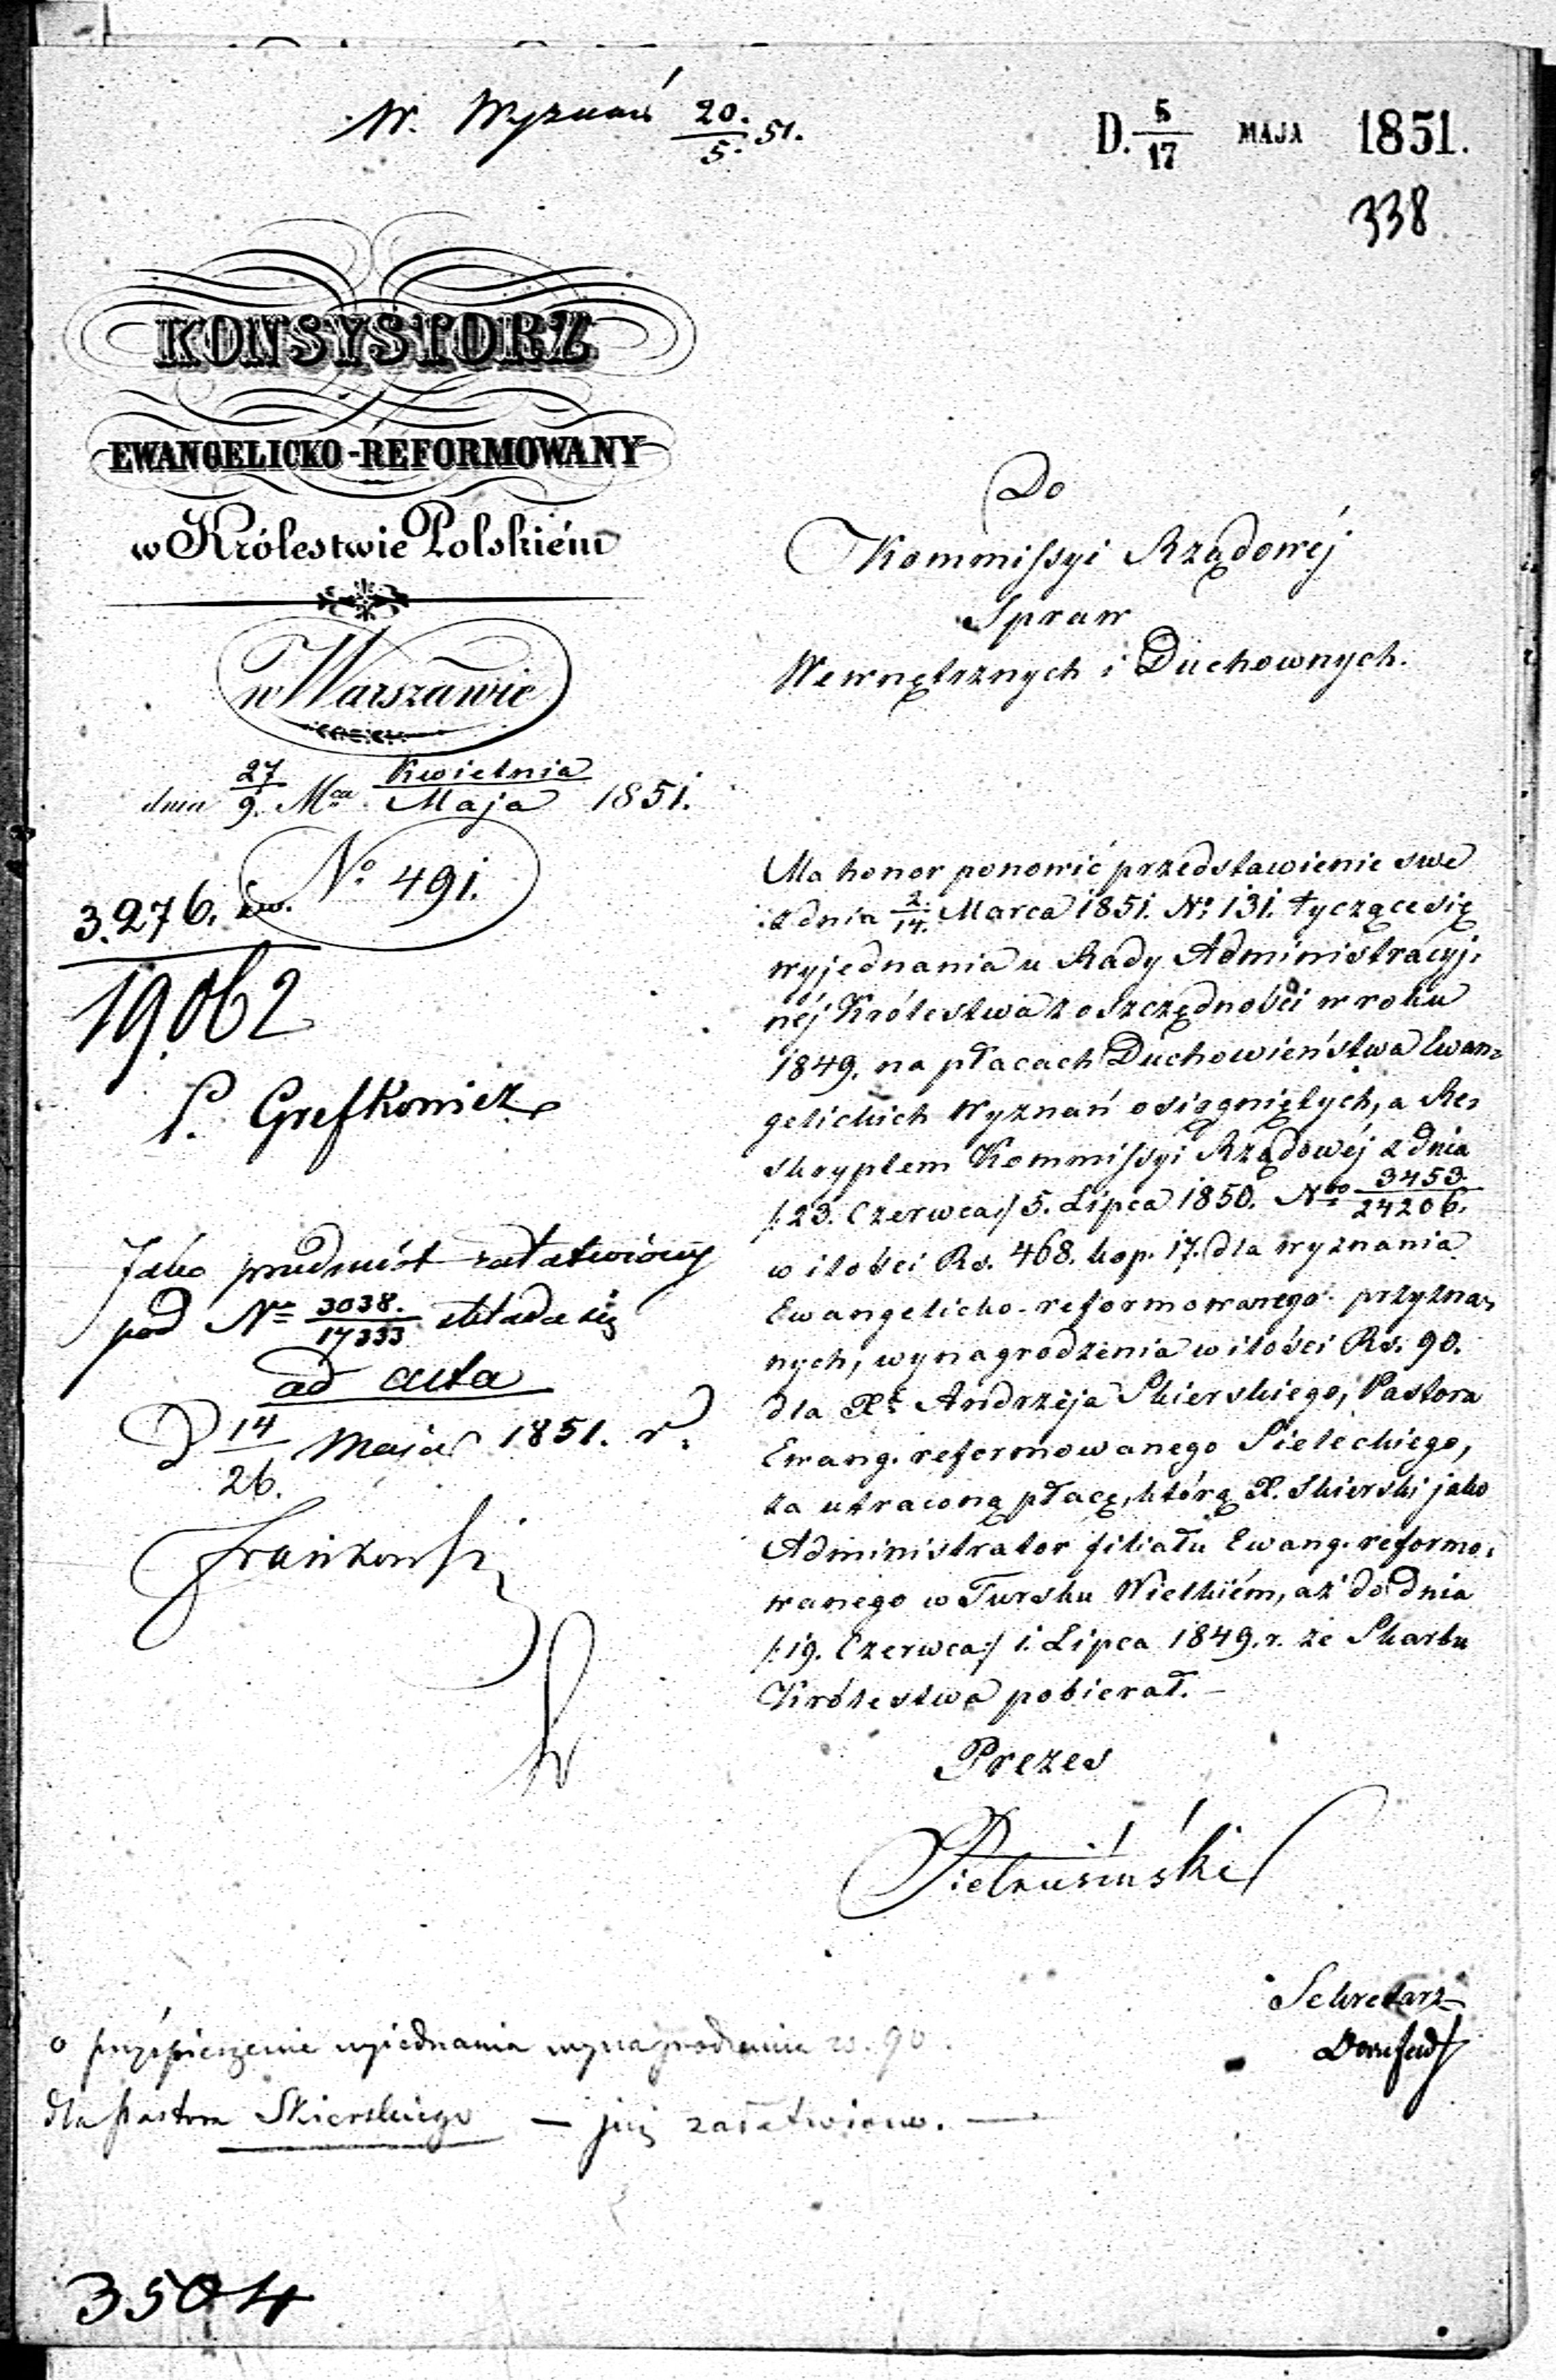 W. Wyznań 20./5. 51.
D. 5/17 MAJA 1851.
338
KONSYSTORZ
EWANGELICKO-REFORMOWANY
w Królestwie Polskiém
w Warszawie
dnia 27/9. Mca Kwietnia/Maja 1851.
No 491.
3.276.
19.062
P. Grefkowicz
Jako przedmiot załatwiony
pod No 3038./17333 składa się
ad acta
D 14/26. Maja 1851. r.
Do
Kommissyi Rządowéj
Spraw
Wewnętrznych i Duchownych.
Ma honor ponowić przedstawienie swe
z dnia 2./14. Marca 1851. No 131. tyczące się
wyjednania u Rady Administracyj-
néj Królestwa z oszczędności w roku
1849. na płacach Duchowieństwa Ewan-
gelickich Wyznań osiągniętych, a Re-
skryptem Kommissyi Rządowéj z dnia
/:23. Czerwca:/ 5. Lipca 1850. Nro 3453./24206.
w ilości Rs. 468. kop. 17. dla wyznania
Ewangelicko-reformowanego przyzna-
nych, wynagrodzenia w ilości Rs. 90.
dla Xa Andrzeja Skierskiego, Pastora
Ewang. reformowanego Sieleckiego,
za utraconą płacę, którą X. Skierski jako
Administrator filiału Ewang. reformo-
wanego w Tursku Wielkiém, aż do dnia
/:19. Czerwca:/ 1. Lipca 1849. r. ze Skarbu
Królestwa pobierał. –
Prezes
Pietrusiński
Sekretarz
o przyśpieszenie wyiednania wynagrodzenia rs. 90.
dla Pastora Skierskiego — już załatwione. —
3504